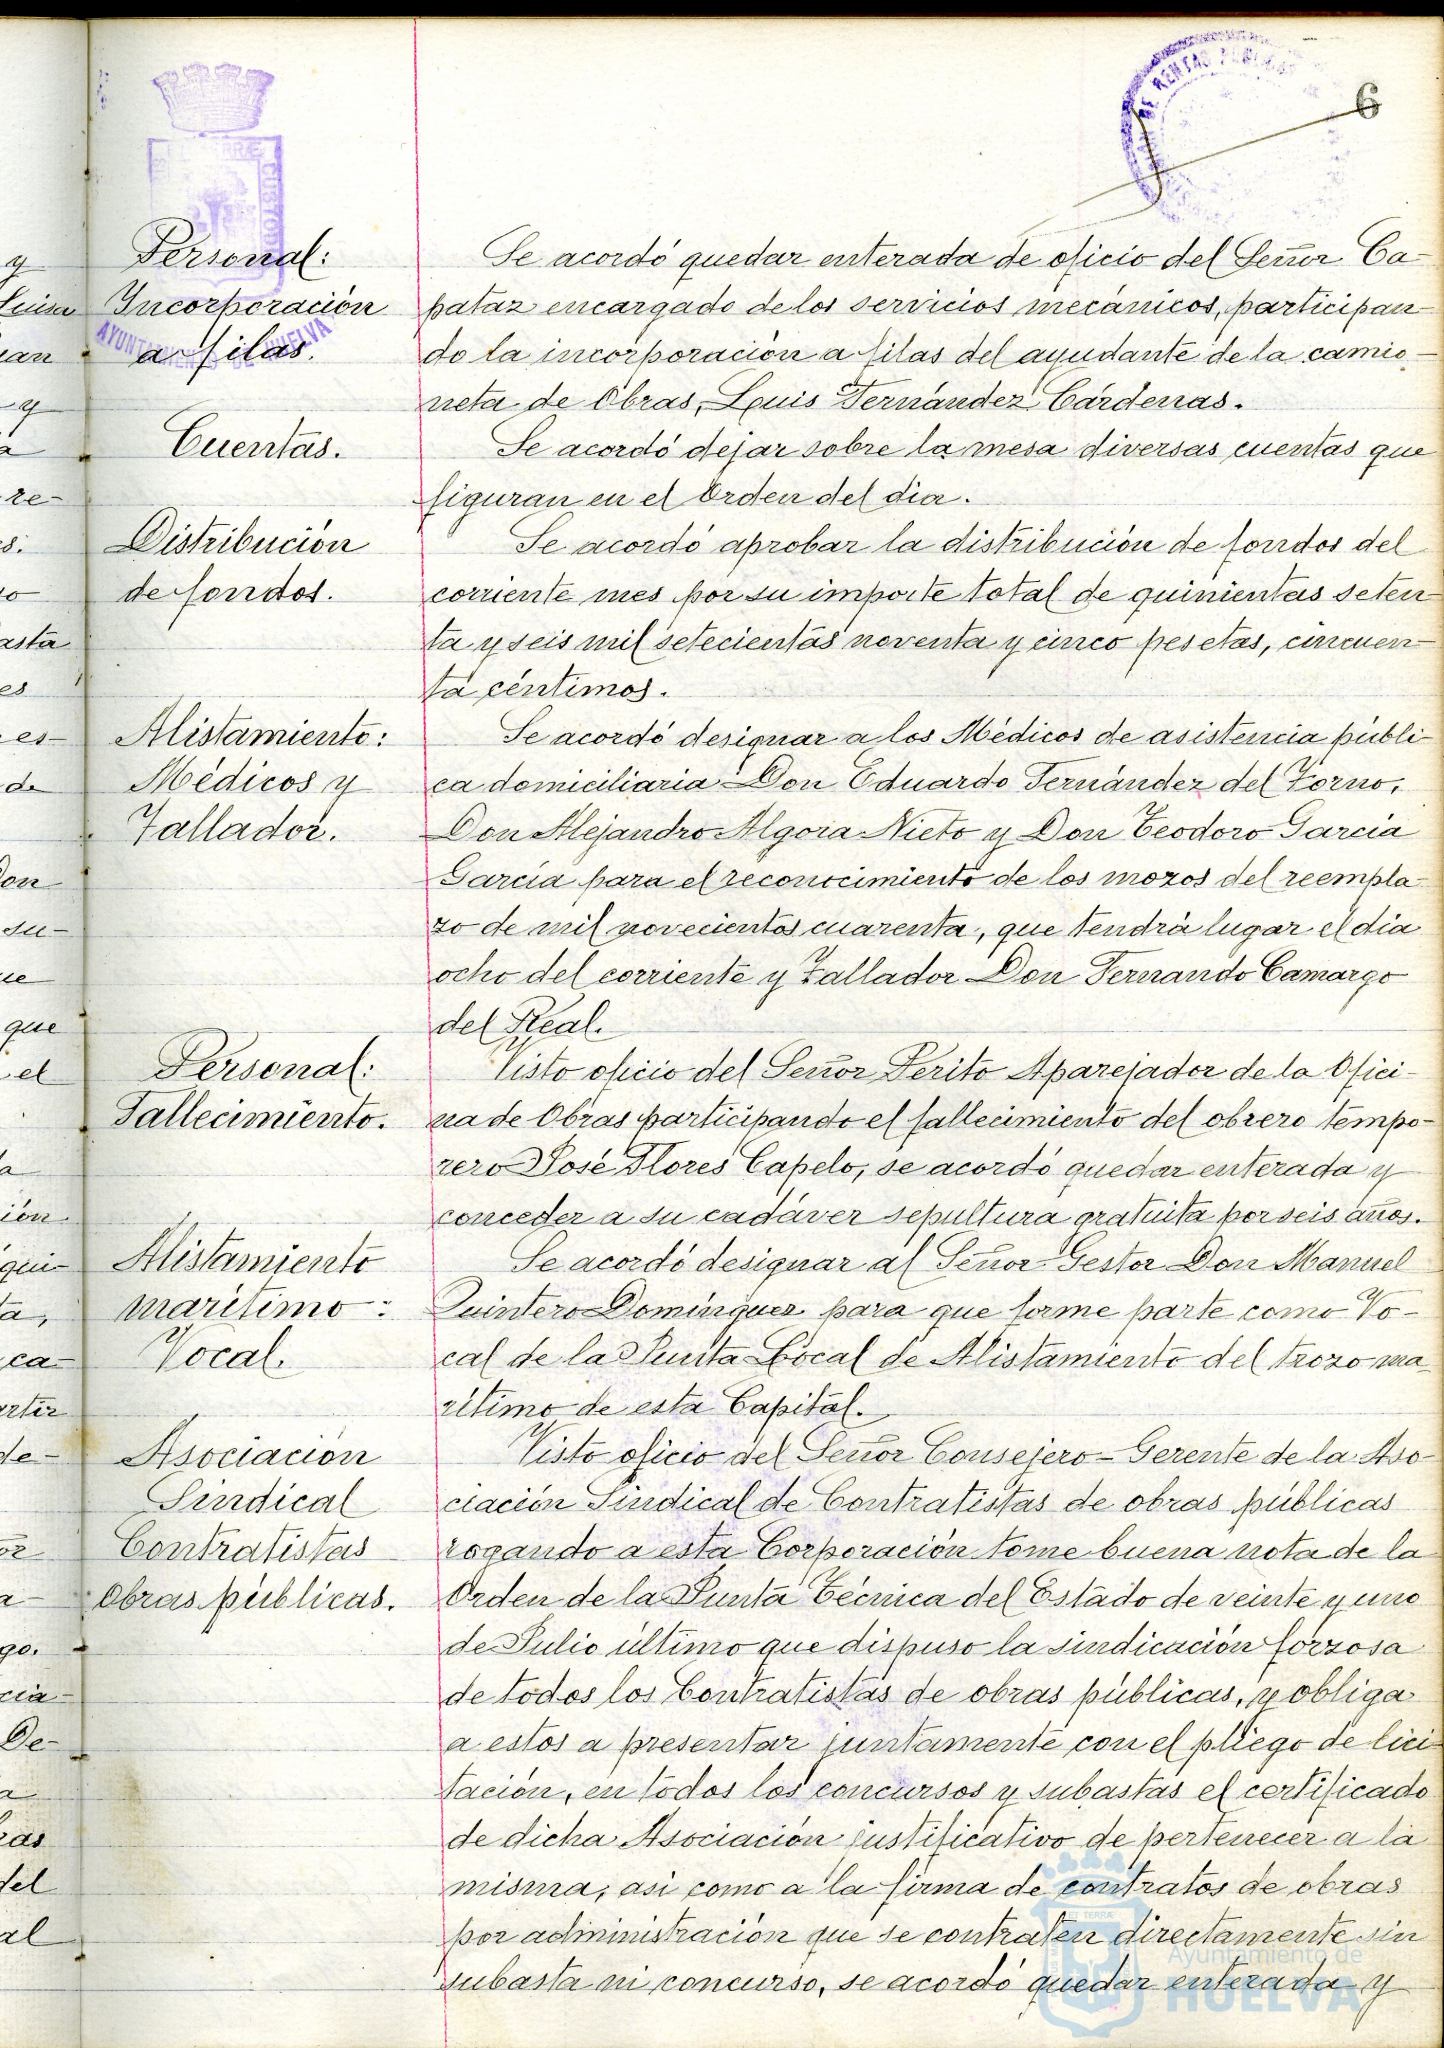 6
DE RENTAS PUBLICAS
CUSTODIT
AYUNTAMIENTO DE HUELVA
Personal:
Incorporación
a filas.
Se acordó quedar enterada de oficio del Señor Ca-
pataz encargado de los servicios mecánicos, participan-
do la incorporación a filas del ayudante de la camio-
neta de Obras, Luis Fernández Cárdenas.
Cuentas.
Se acordó dejar sobre la mesa diversas cuentas que
figuran en el Orden del dia.
Distribución
de fondos.
Se acordó aprobar la distribución de fondos del
corriente mes por su importe total de quinientas seten-
ta y seis mil setecientas noventa y cinco pesetas, cincuen-
ta céntimos.
Alistamiento:
Médicos y
Tallador.
Se acordó designar a los Médicos de asistencia públi-
ca domiciliaria Don Eduardo Fernández del Torno,
Don Alejandro Algora Nieto y Don Teodoro García
García para el reconocimiento de los mozos del reempla-
zo de mil novecientos cuarenta, que tendrá lugar el día
ocho del corriente y Tallador Don Fernando Camargo
del Real.
Personal:
Fallecimiento.
Visto oficio del Señor Perito Aparejador de la Ofici-
na de Obras participando el fallecimiento del obrero tempo-
rero José Flores Capelo, se acordó quedar enterada y
conceder a su cadáver sepultura gratuita por seis años.
Alistamiento
marítimo:
Vocal.
Se acordó designar al Señor Gestor Don Manuel
Quintero Domínguez para que forme parte como Vo-
cal de la Junta Local de Alistamiento del trozo ma-
rítimo de esta Capital.
Asociación
Sindical
Contratistas
Obras públicas.
Visto oficio del Señor Consejero-Gerente de la Aso-
ciación Sindical de Contratistas de obras públicas
rogando a esta Corporación tome buena nota de la
Orden de la Junta Técnica del Estado de veinte y uno
de Julio último que dispuso la sindicación forzosa
de todos los Contratistas de obras públicas, y obliga
a estos a presentar juntamente con el pliego de lici-
tación, en todos los concursos y subastas el certificado
de dicha Asociación justificativo de pertenecer a la
misma, asi como a la firma de contratos de obras
por administración que se contraten directamente sin
subasta ni concurso, se acordó quedar enterada y
Ayuntamiento de
HUELVA